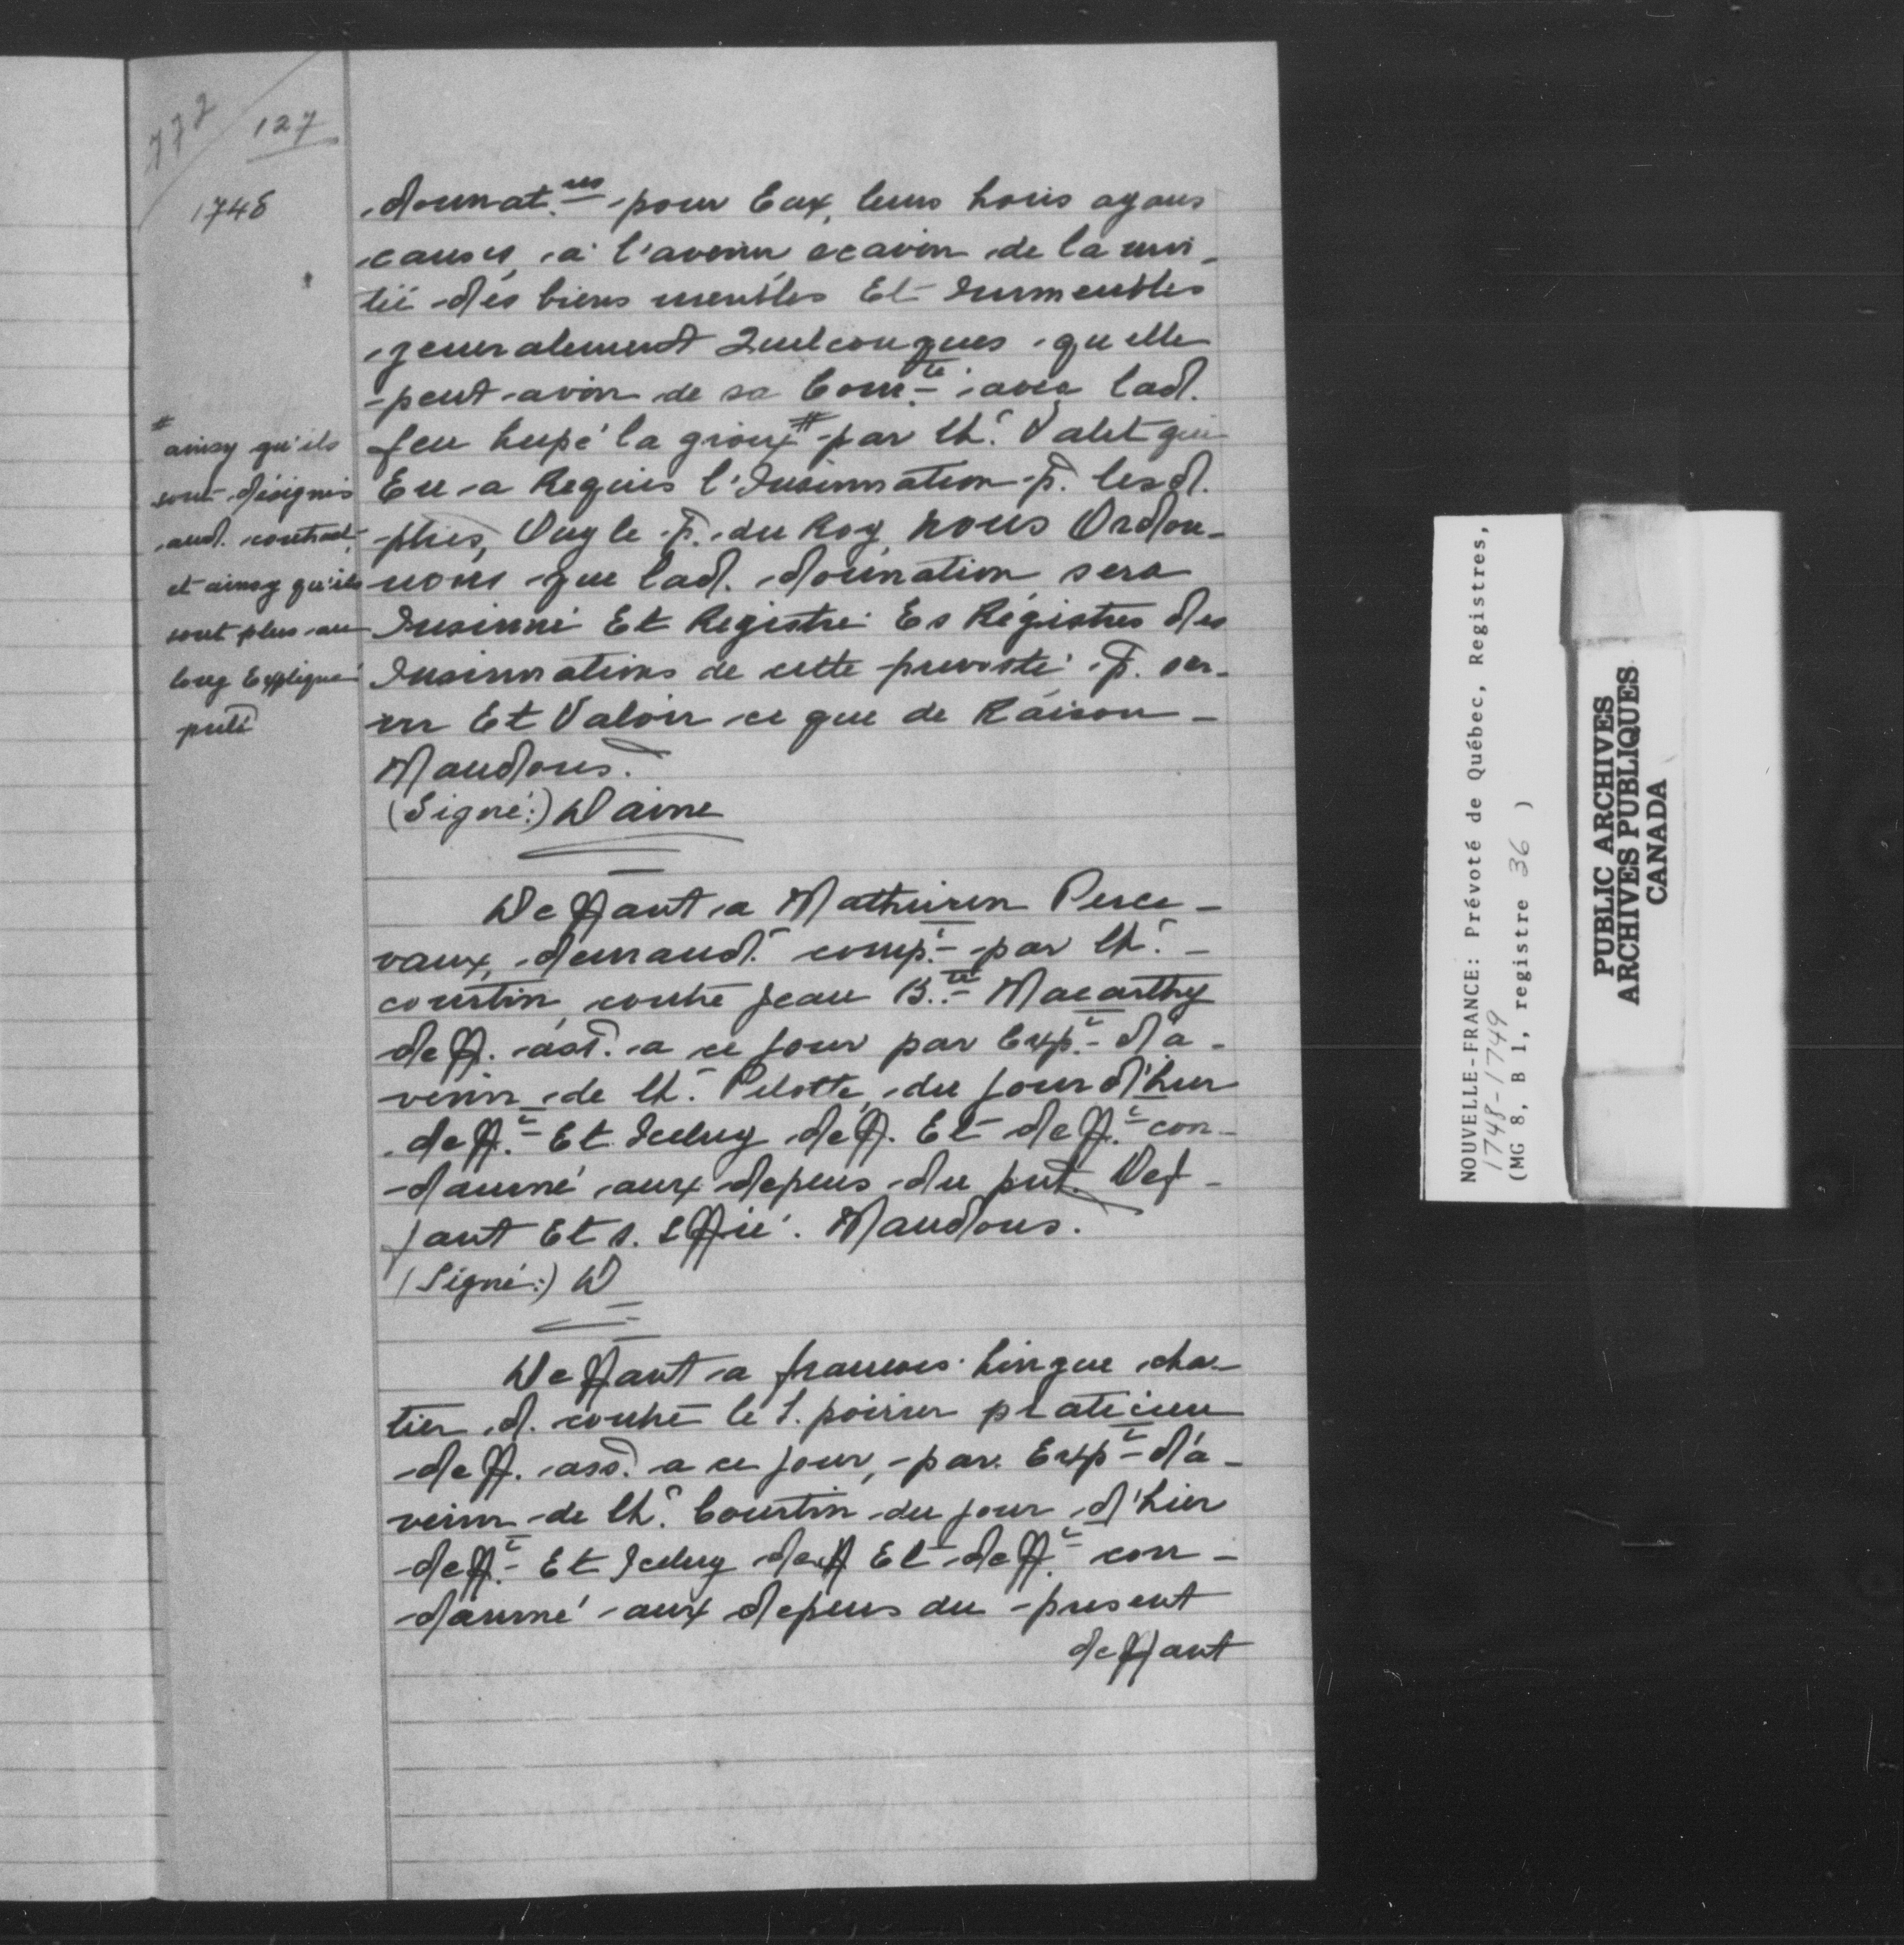 772
127
1748
donnat.res pour Eux, leurs hoirs ayans
causes, a l'avenir scavoir de la moi-
tié des biens meubles Et Immeubles
generalement Quelconques qu elle
peut avoir de sa Com.té avec lad.
feu hupé la grioux # par Me. Valet qui
En a Requis l'Insinuation p. lesd.
pties, Ouy le P. du Roy, nous Ordon-
nons que lad. donnation sera
Insinué Et Registré Es Régistres des
Insinuations de cette prevosté p. ser-
vir Et Valoir ce que de Raison -
Mandons.
(Signé:) Daine
# ainsy qu'ils
sont désignés
aud. contract,
et ainsy qu'ils
sont plus au
long Expliqué
Deffaut a Mathurin Perce-
vaux, demand.r comp.t par Me. -
courtin, contre Jean B.te Macarthy
deff. ass. a ce jour par Exp.t d'a-
venir de Me. Pilotte, du jour d'hier
deff.t Et Iceluy deff. Et deff.t con-
damné aux depens du pnt. Def-
faut Et s. Effié. Mandons.
(Signé:) D
Deffaut a francois hingue cha-
tier, d. contre le S. poirier praticien
deff. ass. a ce jour, par Exp.t d'a-
venir de Me. Courtin du jour d'hier
deff.t Et Iceluy deff Et deff.t con-
damné aux depens du present
deffaut
NOUVELLE-FRANCE: Prévoté de Québec, Registres,
1748-1749
(MG 8, B 1, registre 36 )
PUBLIC ARCHIVES
ARCHIVES PUBLIQUES
CANADA